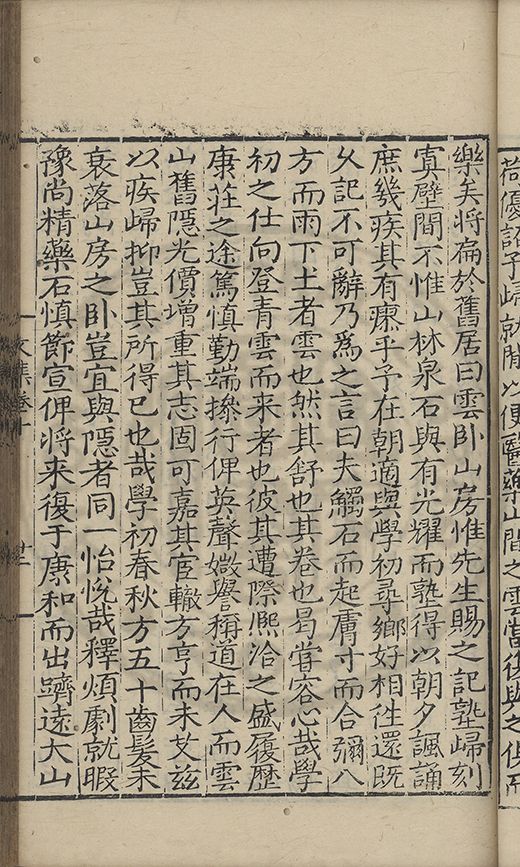 苟優詔予歸就閒以便醫藥山間之雲當復與之俱而
樂矣將扁於舊居曰雲卧山房惟先生賜之記塾歸刻
寘壁間不惟山林泉石與有光耀而塾得以朝夕諷誦
庶幾疾其有瘳乎予在朝適與學初尋鄉好相徃還旣
久記不可辭乃為之言曰夫觸石而起膚寸而合彌八
方而雨下土者雲也然其舒也其卷也曷嘗容心哉學
初之仕向登青雲而来者也彼其遭際熈洽之盛履歷
康莊之途篤慎勤端操行俾英聲媺譽稱道在人而雲
山舊隱光價增重其志固可嘉其宦轍方亨而未艾兹
以疾歸抑豈其所得已也哉學初春秋方五十齒髮未
衰落山房之卧豈宜與隱者同一怡恱哉釋煩劇就暇
豫尚精藥石慎節宣俾将来復于康和而出躋遠大山
文集卷十
廿二